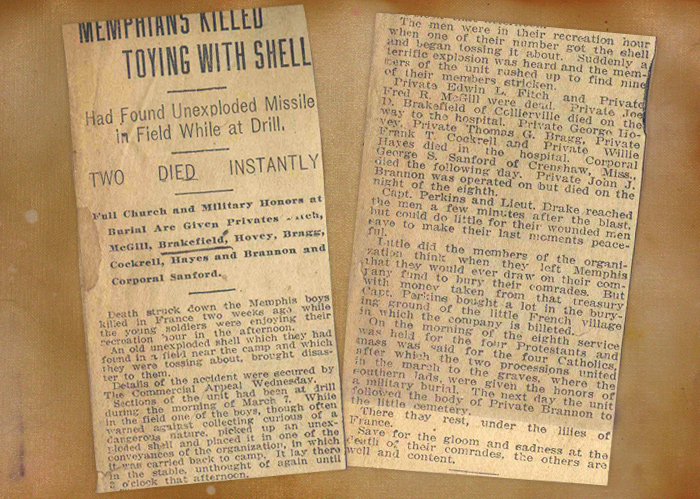 MEMPHIANS KILLED
TOYING WITH SHELL
Had Found Unexploded Missile
in Field While at Drill.
TWO DIED INSTANTLY
Full Church and Military Honors at
Burial Are Given Privates Fitch,
McGill, Brakefield, Hovey, Bragg,
Cockrell, Hayes and Brannon and
Corporal Sanford.
Death struck down the Memphis boys
killed in France two weeks ago while
the young soldiers were enjoying their
recreation hour in the afternoon.
An old unexploded shell which they had
found in a field near the camp and which
they were tossing about, brought disas-
ter to them.
Details of the accident were secured by
The Commercial Appeal Wednesday.
Sections of the unit had been at drill
during the morning of March 7. While
in the field one of the boys, though often
warned against collecting curious of a
dangerous nature, picked up an unex-
ploded shell and placed it in one of the
conveyances of the organization, in which
it was carried back to camp. It lay there
in the stable, unthought of again until
o'clock that afternoon.
The men were in their recreation hour
when one of their number got the shell
and began tossing it about. Suddenly a
terrific explosion was heard and the mem-
bers of the unit rushed up to find nine
of their members stricken.
Private Edwin L. Fitch and Private
Fred R. McGill were dead. Private Joe
D. Brakefield of Collierville died on the
way to the hospital. Private George Ho-
vey, Private Thomas G. Bragg, Private
Frank T. Cockrell and Private Willie
Hayes died in the hospital. Corporal
George S. Sanford of Crenshaw, Miss.,
died the following day. Private John J.
Brannon was operated on but died on the
night of the eighth.
Capt. Perkins and Lieut. Drake reached
the men a few minutes after the blast,
but could do little for their wounded men
save to make their last moments peace-
ful.
Little did the members of the organi-
zation think when they left Memphis
that they would ever draw on their com-
pany fund to bury their comrades. But
with money taken from that treasury
Capt. Perkins bought a lot in the bury-
ing ground of the little French village
in which the company is billeted.
On the morning of the eighth service
was held for the four Protestants and
mass was said for the four Catholics,
after which the two processions united
in the march to the graves, where the
southern lads, were given the honors of
a military burial. The next day the unit
followed the body of Private Brannon to
the little cemetery.
There they rest, under the lilies of
France.
Save for the gloom and sadness at the
death of their comrades, the others are
well and content.